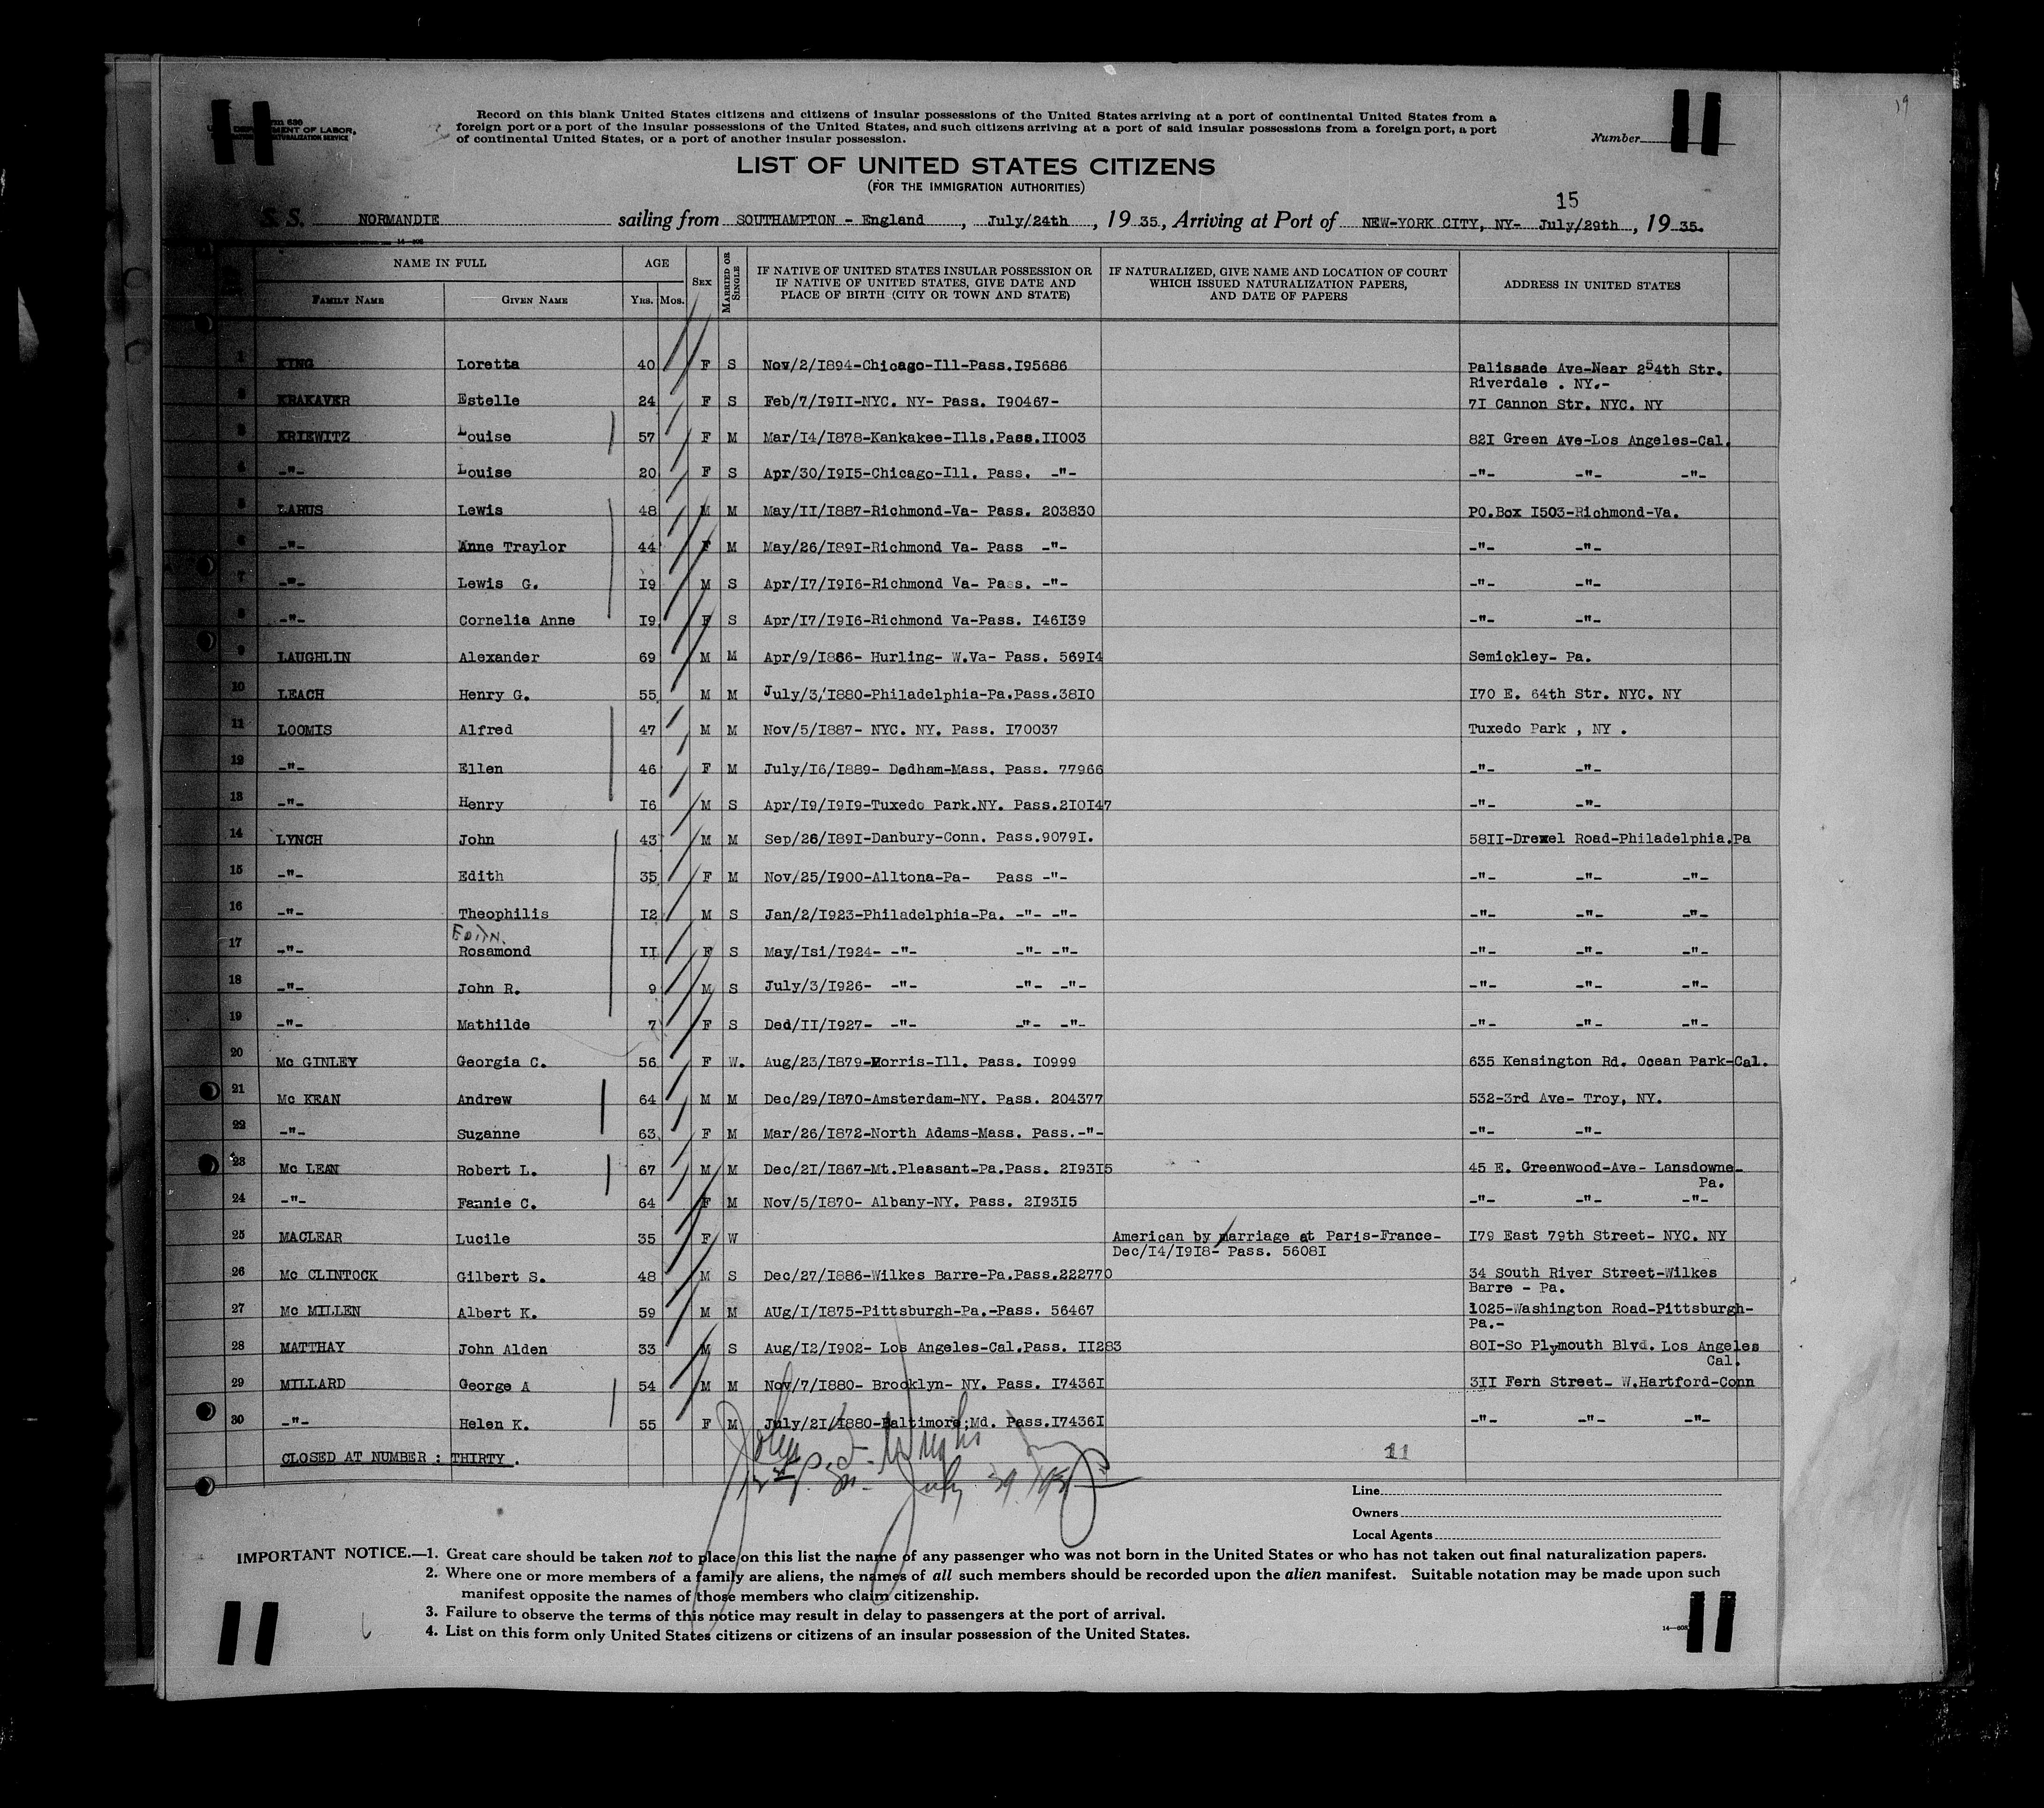 19
Form 630
U. S. DEPARTMENT OF LABOR,
NATURALIZATION SERVICE
Record on this blank United States citizens and citizens of insular possessions of the United States arriving at a port of continental United States from a
foreign port or a port of the insular possessions of the United States, and such citizens arriving at a port of said insular possessions from a foreign port, a port
of continental United States, or a port of another insular possession.
Number 11
LIST OF UNITED STATES CITIZENS
(FOR THE IMMIGRATION AUTHORITIES)
15
S. S. NORMANDIE sailing from SOUTHAMPTON - England, July/24th, 19 35, Arriving at Port of NEW-YORK CITY, NY- July/29th, 19 35.
NAME IN FULL AGE SEX MARRIED OR SINGLE IF NATIVE OF UNITED STATES INSULAR POSSESSION OR IF NATIVE OF UNITED STATES, GIVE DATE AND PLACE OF BIRTH (CITY OR TOWN AND STATE) IF NATURALIZED, GIVE NAME AND LOCATION OF COURT WHICH ISSUED NATURALIZATION PAPERS, AND DATE OF PAPERS ADDRESS IN UNITED STATES
FAMILY NAME GIVEN NAME YRS. MOS.
1 KING Loretta 40 F S Nov/2/I894-Chicago-Ill-Pass.I95686 Palissade Ave-Near 254th Str.
Riverdale . NY.-
2 KRAKAVER Estelle 24 F S Feb/7/I9II-NYC. NY- Pass. I90467- 7I Cannon Str. NYC. NY
3 KRIEWITZ Louise 57 F M Mar/I4/I878-Kankakee-Ills.Pass.II003 82I Green Ave-Los Angeles-Cal.
4 -"- Louise 20 F S Apr/30/I9I5-Chicago-Ill. Pass. -"- -"- -"- -"-
5 LARUS Lewis 48 M M May/II/I887-Richmond-Va- Pass. 203830 PO.Box I503-Richmond-Va.
6 -"- Anne Traylor 44 F M May/26/I89I-Richmond Va- Pass -"- -"- -"-
7 -"- Lewis G. I9 M S Apr/I7/I9I6-Richmond Va- Pass. -"- -"- -"-
8 -"- Cornelia Anne I9 F S Apr/I7/I9I6-Richmond Va-Pass. I46I39 -"- -"-
9 LAUGHLIN Alexander 69 M M Apr/9/I866- Hurling- W.Va- Pass. 569I4 Semickley- Pa.
10 LEACH Henry G. 55 M M July/3/I880-Philadelphia-Pa.Pass.38I0 I70 E. 64th Str. NYC. NY
11 LOOMIS Alfred 47 M M Nov/5/I887- NYC. NY. Pass. I70037 Tuxedo Park , NY .
12 -"- Ellen 46 F M July/I6/I889- Dedham-Mass. Pass. 77966 -"- -"-
13 -"- Henry I6 M S Apr/I9/I9I9-Tuxedo Park.NY. Pass.2I0I47 -"- -"-
14 LYNCH John 43 M M Sep/26/I89I-Danbury-Conn. Pass.9079I. 58II-Drexel Road-Philadelphia.Pa
15 -"- Edith 35 F M Nov/25/I900-Alltona-Pa- Pass -"- -"- -"- -"-
16 -"- Theophilis I2 M S Jan/2/I923-Philadelphia-Pa. -"- -"- -"- -"- -"-
EDITH.
17 -"- Rosamond II F S May/Isi/I924- -"- -"- -"- -"- -"- -"-
18 -"- John R. 9 M S July/3/I926- -"- -"- -"- -"- -"- -"-
19 -"- Mathilde 7 F S Ded/II/I927- -"- -"- -"- -"- -"- -"-
20 Mc GINLEY Georgia C. 56 F W. Aug/23/I879-Morris-Ill. Pass. I0999 635 Kensington Rd. Ocean Park-Cal.
21 Mc KEAN Andrew 64 M M Dec/29/I870-Amsterdam-NY. Pass. 204377 532-3rd Ave- Troy, NY.
22 -"- Suzanne 63 F M Mar/26/I872-North Adams-Mass. Pass.-"- -"- -"-
23 Mc LEAN Robert L. 67 M M Dec/2I/I867-Mt.Pleasant-Pa.Pass. 2I93I5 45 E. Greenwood-Ave- Lansdowne-
Pa.
24 -"- Fannie C. 64 F M Nov/5/I870- Albany-NY. Pass. 2I93I5 -"- -"- -"-
25 MACLEAR Lucile 35 F W American by marriage at Paris-France- I79 East 79th Street- NYC. NY
Dec/I4/I9I8- Pass. 5608I
26 Mc CLINTOCK Gilbert S. 48 M S Dec/27/I886-Wilkes Barre-Pa.Pass.222770 34 South River Street-Wilkes
Barre - Pa.
27 Mc MILLEN Albert K. 59 M M AUg/I/I875-Pittsburgh-Pa.-Pass. 56467 1025-Washington Road-Pittsburgh-
Pa.-
28 MATTHAY John Alden 33 M S Aug/I2/I902- Los Angeles-Cal.Pass. II283 80I-So Plymouth Blvd. Los Angeles
Cal.
29 MILLARD George A 54 M M Nov/7/I880- Brooklyn- NY. Pass. I7436I 3II Fern Street- W.Hartford-Conn
30 -"- Helen K. 55 F M July/2I/I880-Baltimore;Md. Pass.I7436I -"- -"- -"-
CLOSED AT NUMBER : THIRTY . 11
July
Line
Owners
Local Agents
IMPORTANT NOTICE.—1. Great care should be taken not to place on this list the name of any passenger who was not born in the United States or who has not taken out final naturalization papers.
2. Where one or more members of a family are aliens, the names of all such members should be recorded upon the alien manifest. Suitable notation may be made upon such
manifest opposite the names of those members who claim citizenship.
3. Failure to observe the terms of this notice may result in delay to passengers at the port of arrival.
4. List on this form only United States citizens or citizens of an insular possession of the United States.